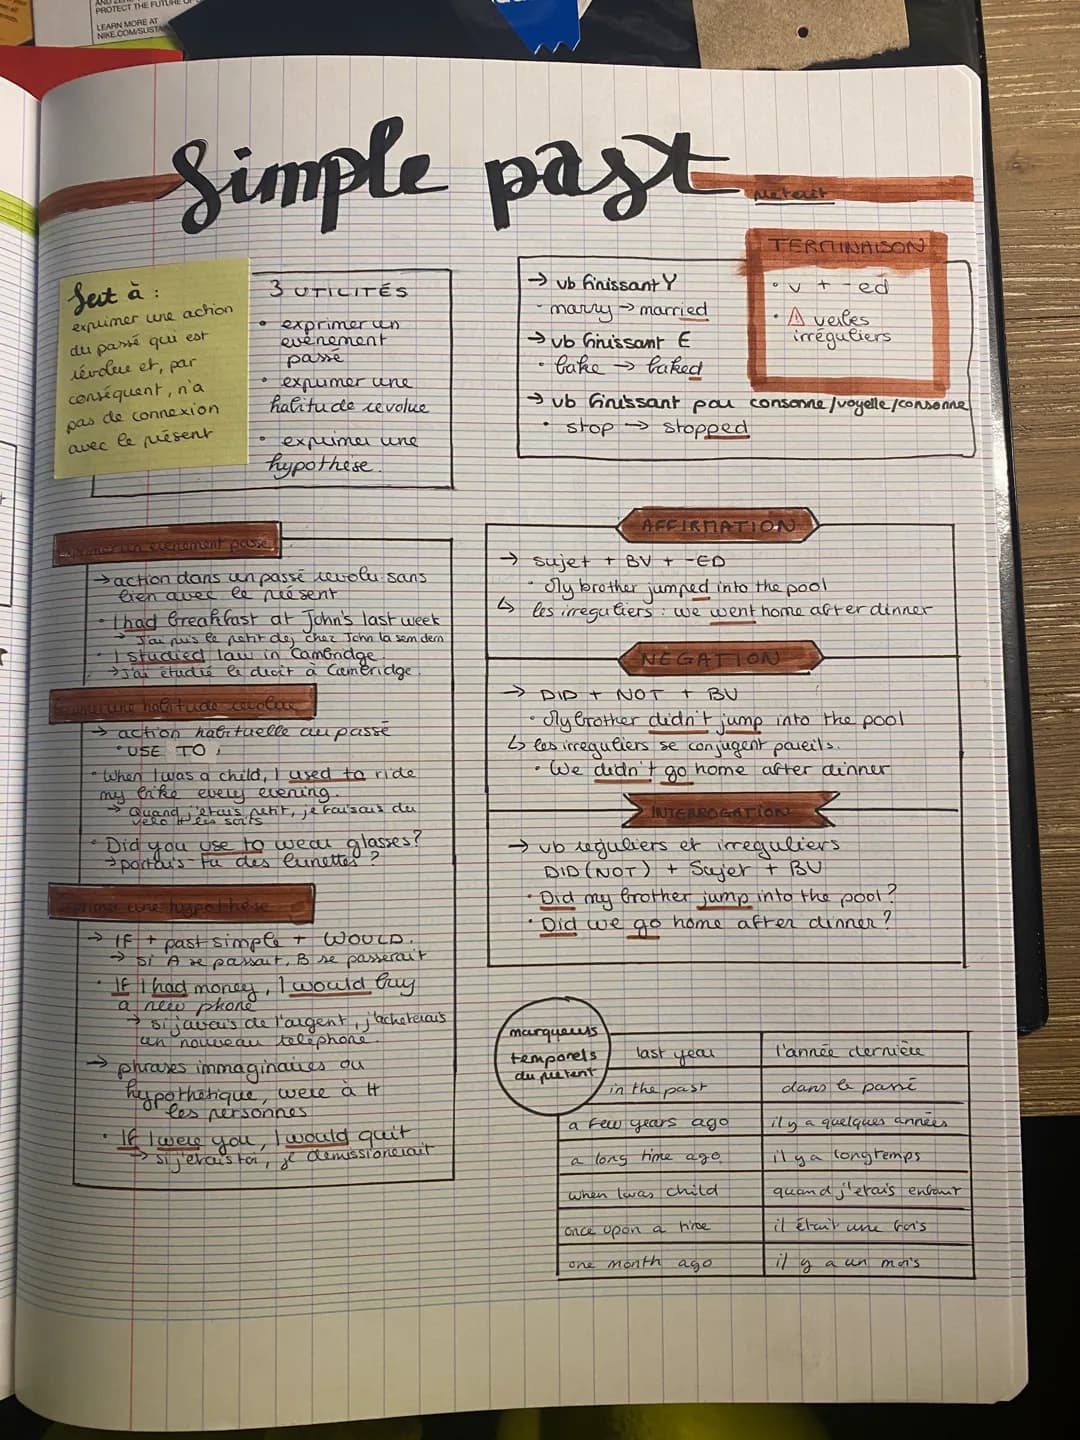 PROTECT THE FUTURE OF
LEARN MORE AT
NIKE.COM/SUSTAI
Simple past
preterit
Sert à :
exprimer une action
du passé qui est
révolue et, par
conséquent, n'a
pas de connexion
avec le présent
3 UTILITÉS
• exprimer un
evenement
passé
• exprimer une
habitude revolue
• exprimer une
hypothèse.
TERMINAISON
• v + -ed
• ⚠ verbes
irréguliers
→ vb finissant Y
- marry → married
→ vb finissant E
• bake → baked
→ vb finissant par consonne/voyelle/consonne
• stop → stopped
exprimer un evenement passé
→ action dans un passé revolu sans
lien avec le présent
• I had breakfast at John's last week
→ J'ai pris le petit dej chez John la sem dern
• I studied law in Cambridge.
→ j'ai étudié le droit à Cambridge.
exprimer une habitude revolue
→ action habituelle au passé
• USE TO
• When I was a child, I used to ride
my bike every evening.
→ Quand j'etais petit, je faisais du
velo tt les soirs
• Did you use to wear glasses?
→ portais-tu des lunettes ?
exprimer une hypothèse
→ IF + past simple + WOULD.
→ si A se passait, B se passerait
• If I had money, I would buy
a new phone
→ si j'avais de l'argent, j'acheterais
un nouveau telephone.
→ phrases immaginaires ou
hypothetique, were à tt
les personnes
• If I were you, I would quit
→ si j'etais toi, je demissionerait
AFFIRMATION
→ sujet + BV + -ED
• My brother jumped into the pool
↳ les irreguliers : we went home after dinner
NEGATION
→ DID + NOT + BV
• My brother didn't jump into the pool
↳ les irreguliers se conjugent pareils.
• We didn't go home after dinner
INTERROGATION
→ vb reguliers et irreguliers
DID (NOT) + Sujet + BV
• Did my brother jump into the pool?
• Did we go home after dinner?
marqueurs
temporels
du preterit
last year l'année dernière
in the past dans le passé
a few years ago il y a quelques années
a long time ago il y a longtemps
when I was child quand j'etais enfant
once upon a time il était une fois
one month ago il y a un mois